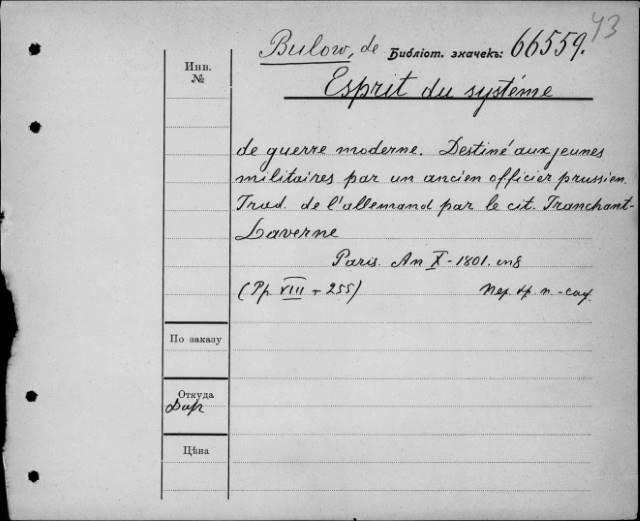 43
Bulow, de Библіот. значекъ: 66559.
Инв.
№
Esprit du systéme
de guerre moderne. Destiné aux jeunes
militaires par un ancien officier prussien.
Trad. de l'allemand par le cit. Tranchant-
Laverne
Paris. An X - 1801. in 8
(Pp. VIII + 255) Пер. фр. п.
По заказу
Откуда
Дар
Цѣна